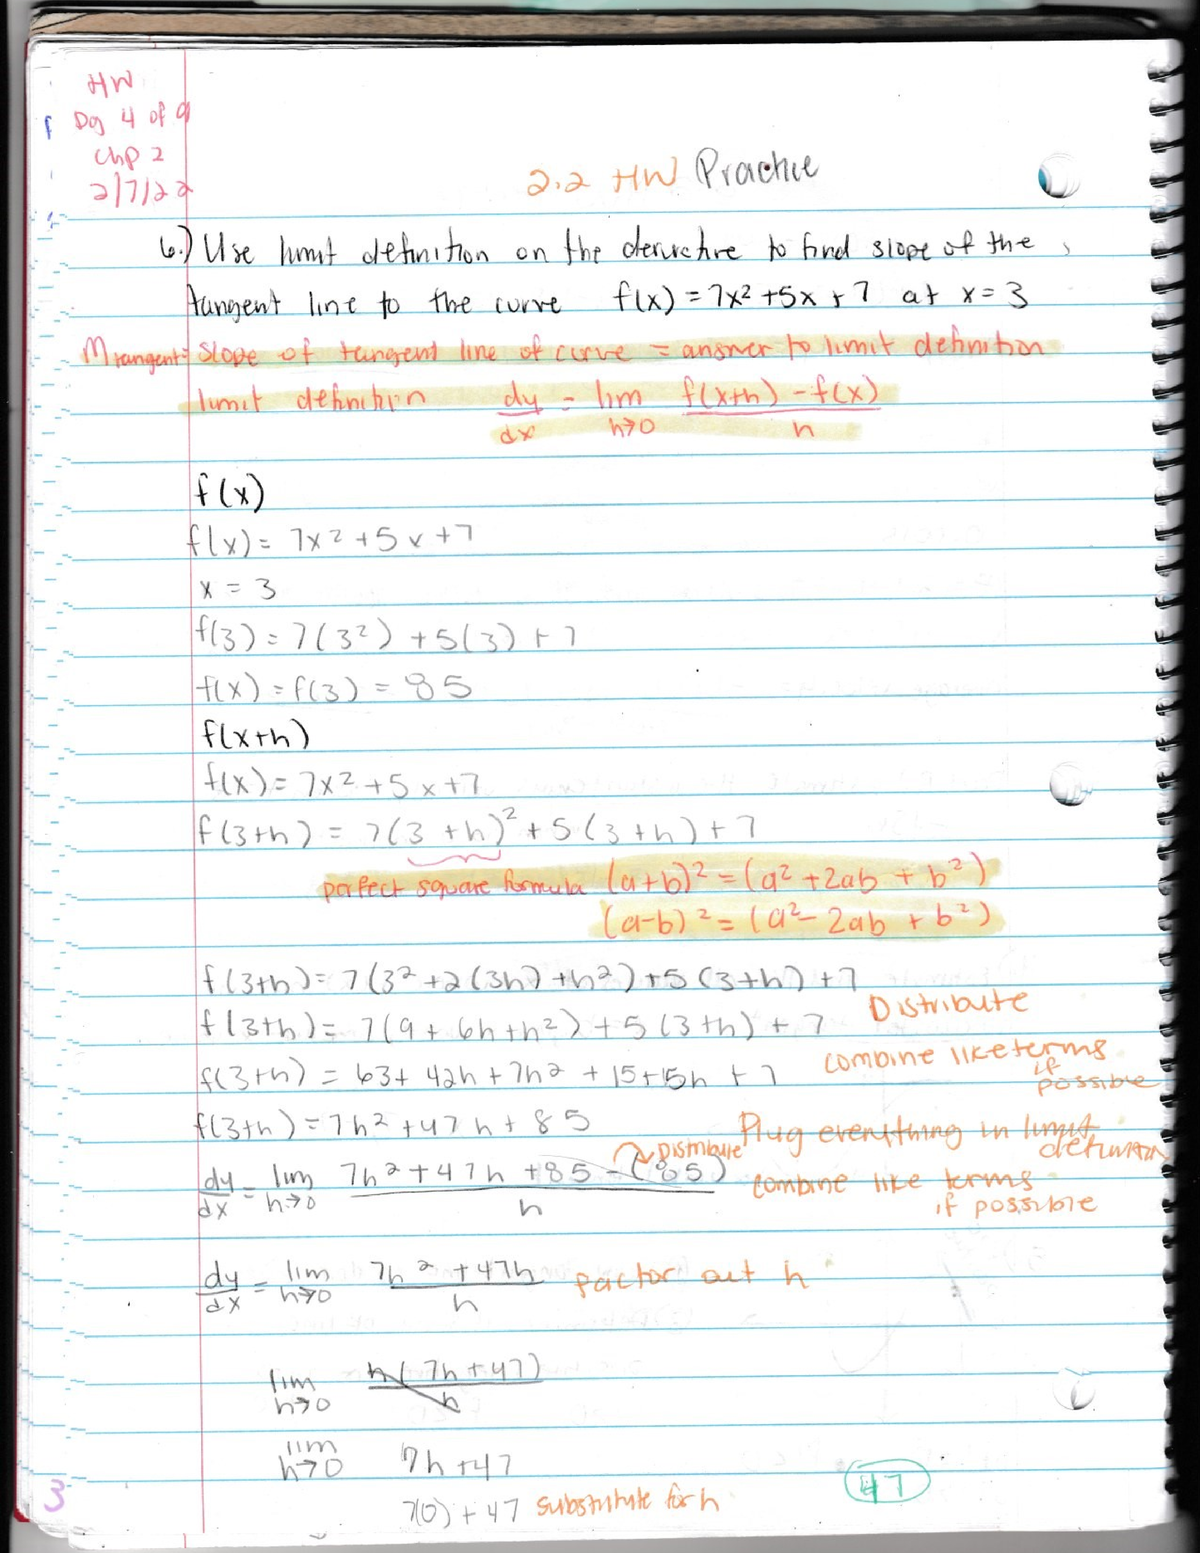 HW
Day 4 of 9
Chp 2
2/7/22
2.2 HW Practice
6.) Use limit definition on the derivative to find slope of the
tangent line to the curve f(x) = 7x² + 5x + 7 at x = 3
M tangent = slope of tangent line of curve = answer to limit definition
limit definition dy/dx = lim h→0 f(x+h) - f(x) / h
f(x)
f(x) = 7x² + 5x + 7
x = 3
f(3) = 7(3²) + 5(3) + 7
f(x) = f(3) = 85
f(x+h)
f(x) = 7x² + 5x + 7
f(3+h) = 7(3+h)² + 5(3+h) + 7
perfect square formula (a+b)² = (a² + 2ab + b²)
(a-b)² = (a² - 2ab + b²)
f(3+h) = 7(3² + 2(3h) + h²) + 5(3+h) + 7
f(3+h) = 7(9 + 6h + h²) + 5(3+h) + 7 Distribute
f(3+h) = 63 + 42h + 7h² + 15 + 5h + 7 combine like terms
if
possible
f(3+h) = 7h² + 47h + 85 Plug everything in limit
definition
Distribute
dy/dx = lim h→0 7h² + 47h + 85 - (85) / h combine like terms
if possible
dy/dx = lim h→0 7h² + 47h / h factor out h
lim h→0 h(7h + 47) / h
lim h→0 7h + 47
47
7(0) + 47 substitute for h
3